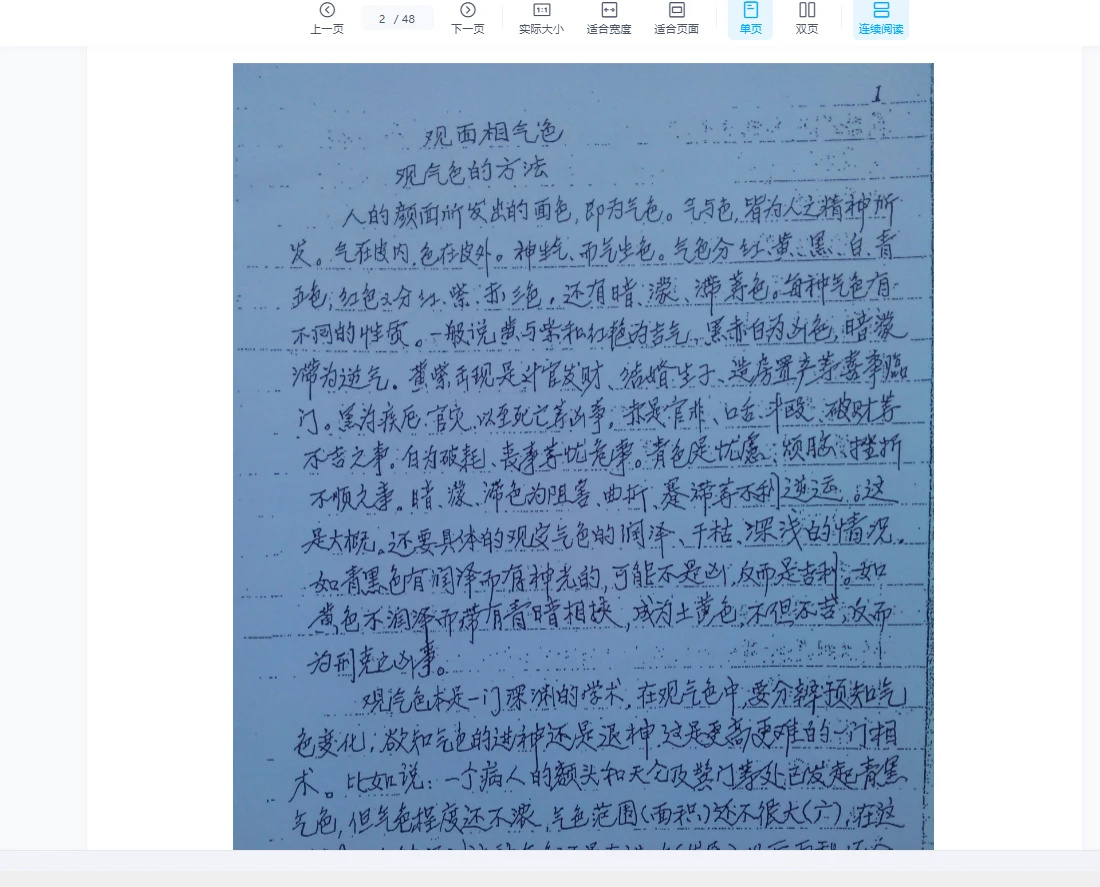 上一页
2 / 48
下一页
1:1
实际大小
适合宽度
适合页面
单页
双页
连续阅读
1
观面相气色
观气色的方法
人的颜面所发出的面色,即为气色。气与色,皆为人之精神所
发。气在皮内,色在皮外。神生气、而气生色。气色分红、黄、黑、白、青
五色,红色又分红、紫、赤三色。还有暗、濛、滞等色。每种气色有
不同的性质。一般说黄与紫和红艳为吉气,黑赤白为凶色,暗濛
滞为逆气。黄紫出现是升官发财、结婚生子、造房置产等喜事临
门。黑为疾厄、官灾、以至死亡等凶事。赤是官非、口舌、斗殴、破财等
不吉之事。白为破耗、丧事等忧危事。青色是忧虑、烦脑、挫折
不顺之事。暗、濛、滞色为阻害、曲折、蹇滞等不利逆运。这
是大概。还要具体的观定气色的润泽、干枯、深浅的情况。
如青黑色有润泽而有神光的,可能不是凶,反而是吉利。如
黄色不润泽而带有青暗相挟,成为土黄色,不但不吉,反而
为刑克之凶事。
观气色本是一门深渊的学术,在观气色中,要分辩预知气
色变化,欲知气色的进神还是退神,这是更高更难的一门相
术。比如说:一个病人的额头和天仑及黉门等处已发起青黑
气色,但气色程度还不濃,气色范围(面积)还不很大(亦),在这